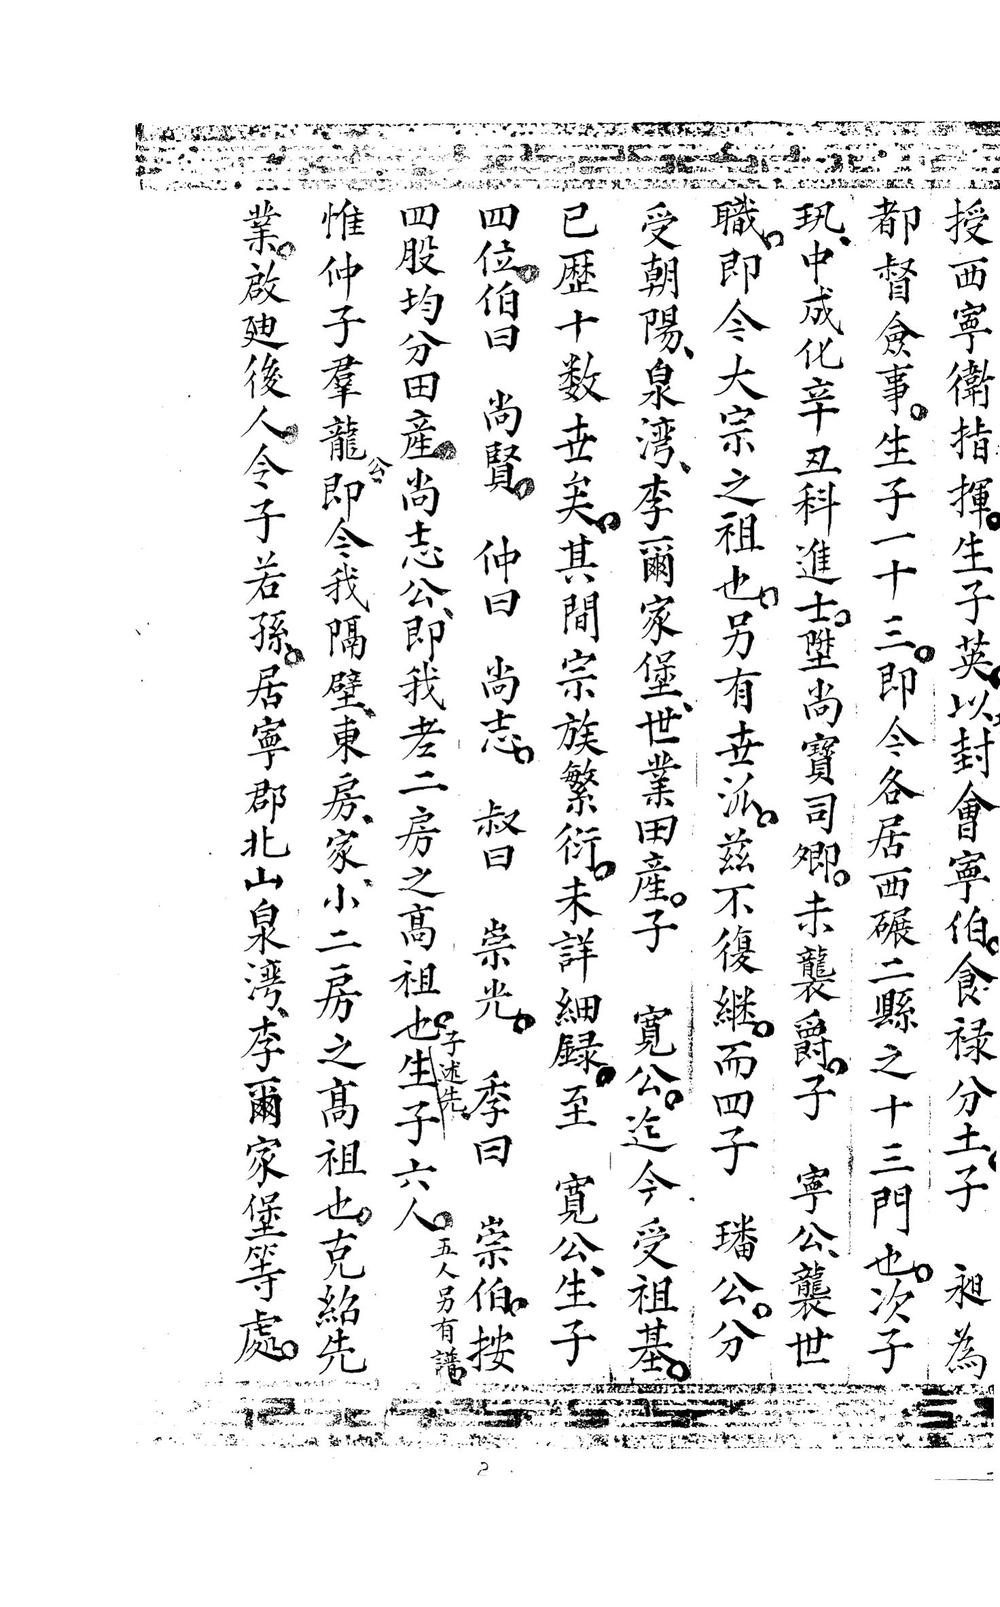 授西寧衛指揮。生子英、以封會寧伯。食禄分土。子　昶為
都督僉事。生子一十三。即今各居西碾二縣之十三門也。次子
玑、中成化辛丑科進士。陞尚寶司卿。未襲爵。子　寧公、襲世
職。即今大宗之祖也。另有世派。兹不復継。而四子　璠公。分
受朝陽、泉湾、李爾家堡、世業田産。子　寬公。迄今受祖基。
已歷十数世矣。其間宗族繁衍。未詳細録。至　寬公、生子
四位。伯曰　尚賢。　仲曰　尚志。　叔曰　崇光。　季曰　崇伯。按
四股均分田産。尚志公、即我老二房之高祖也。子述先。生子六人。五人另有譜。
惟仲子羣龍公即今我隔壁、東房、家、小二房之高祖也。克紹先
業。啟廸後人。今子若孫。居寧郡北山泉湾、李爾家堡等處。
2